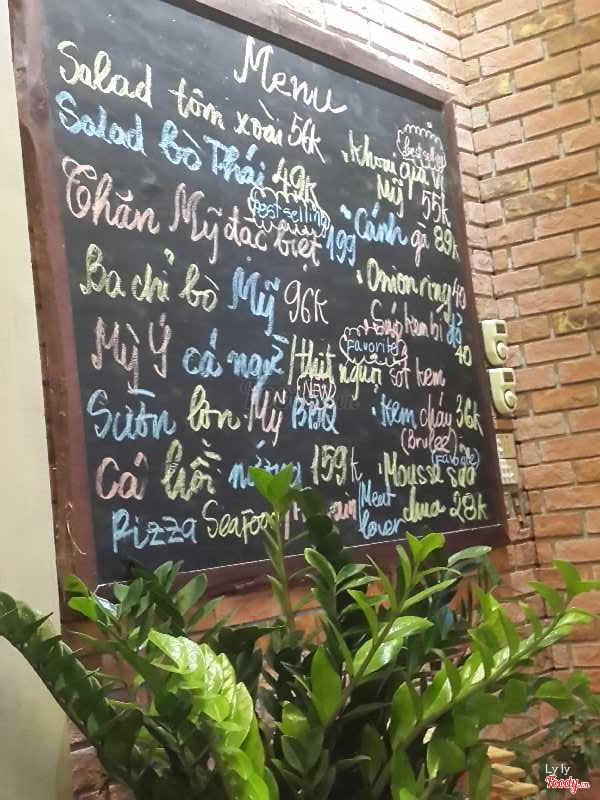 Menu
Salad tôm xoài 56k
Salad bò Thái 49k
Best selling
Thăn Mỹ đặc biệt 199
Ba chỉ bò Mỹ 96k
Mỳ Ý cá ngừ / thịt nguội sốt kem
NEW
Sườn lợn Mỹ BBQ
Cá hồi nướng 159k
Pizza Seafood / Hawaiian / Meat lover
best selling
Khoai gia vị
Mỹ 55k
Cánh gà 89k
Onion ring 40
Súp kem bí đỏ
40
Favorite
Kem cháy 36k
(Brulee)
Favorite
Mousse sữa
chua 28k
Ly ly
Foody.vn